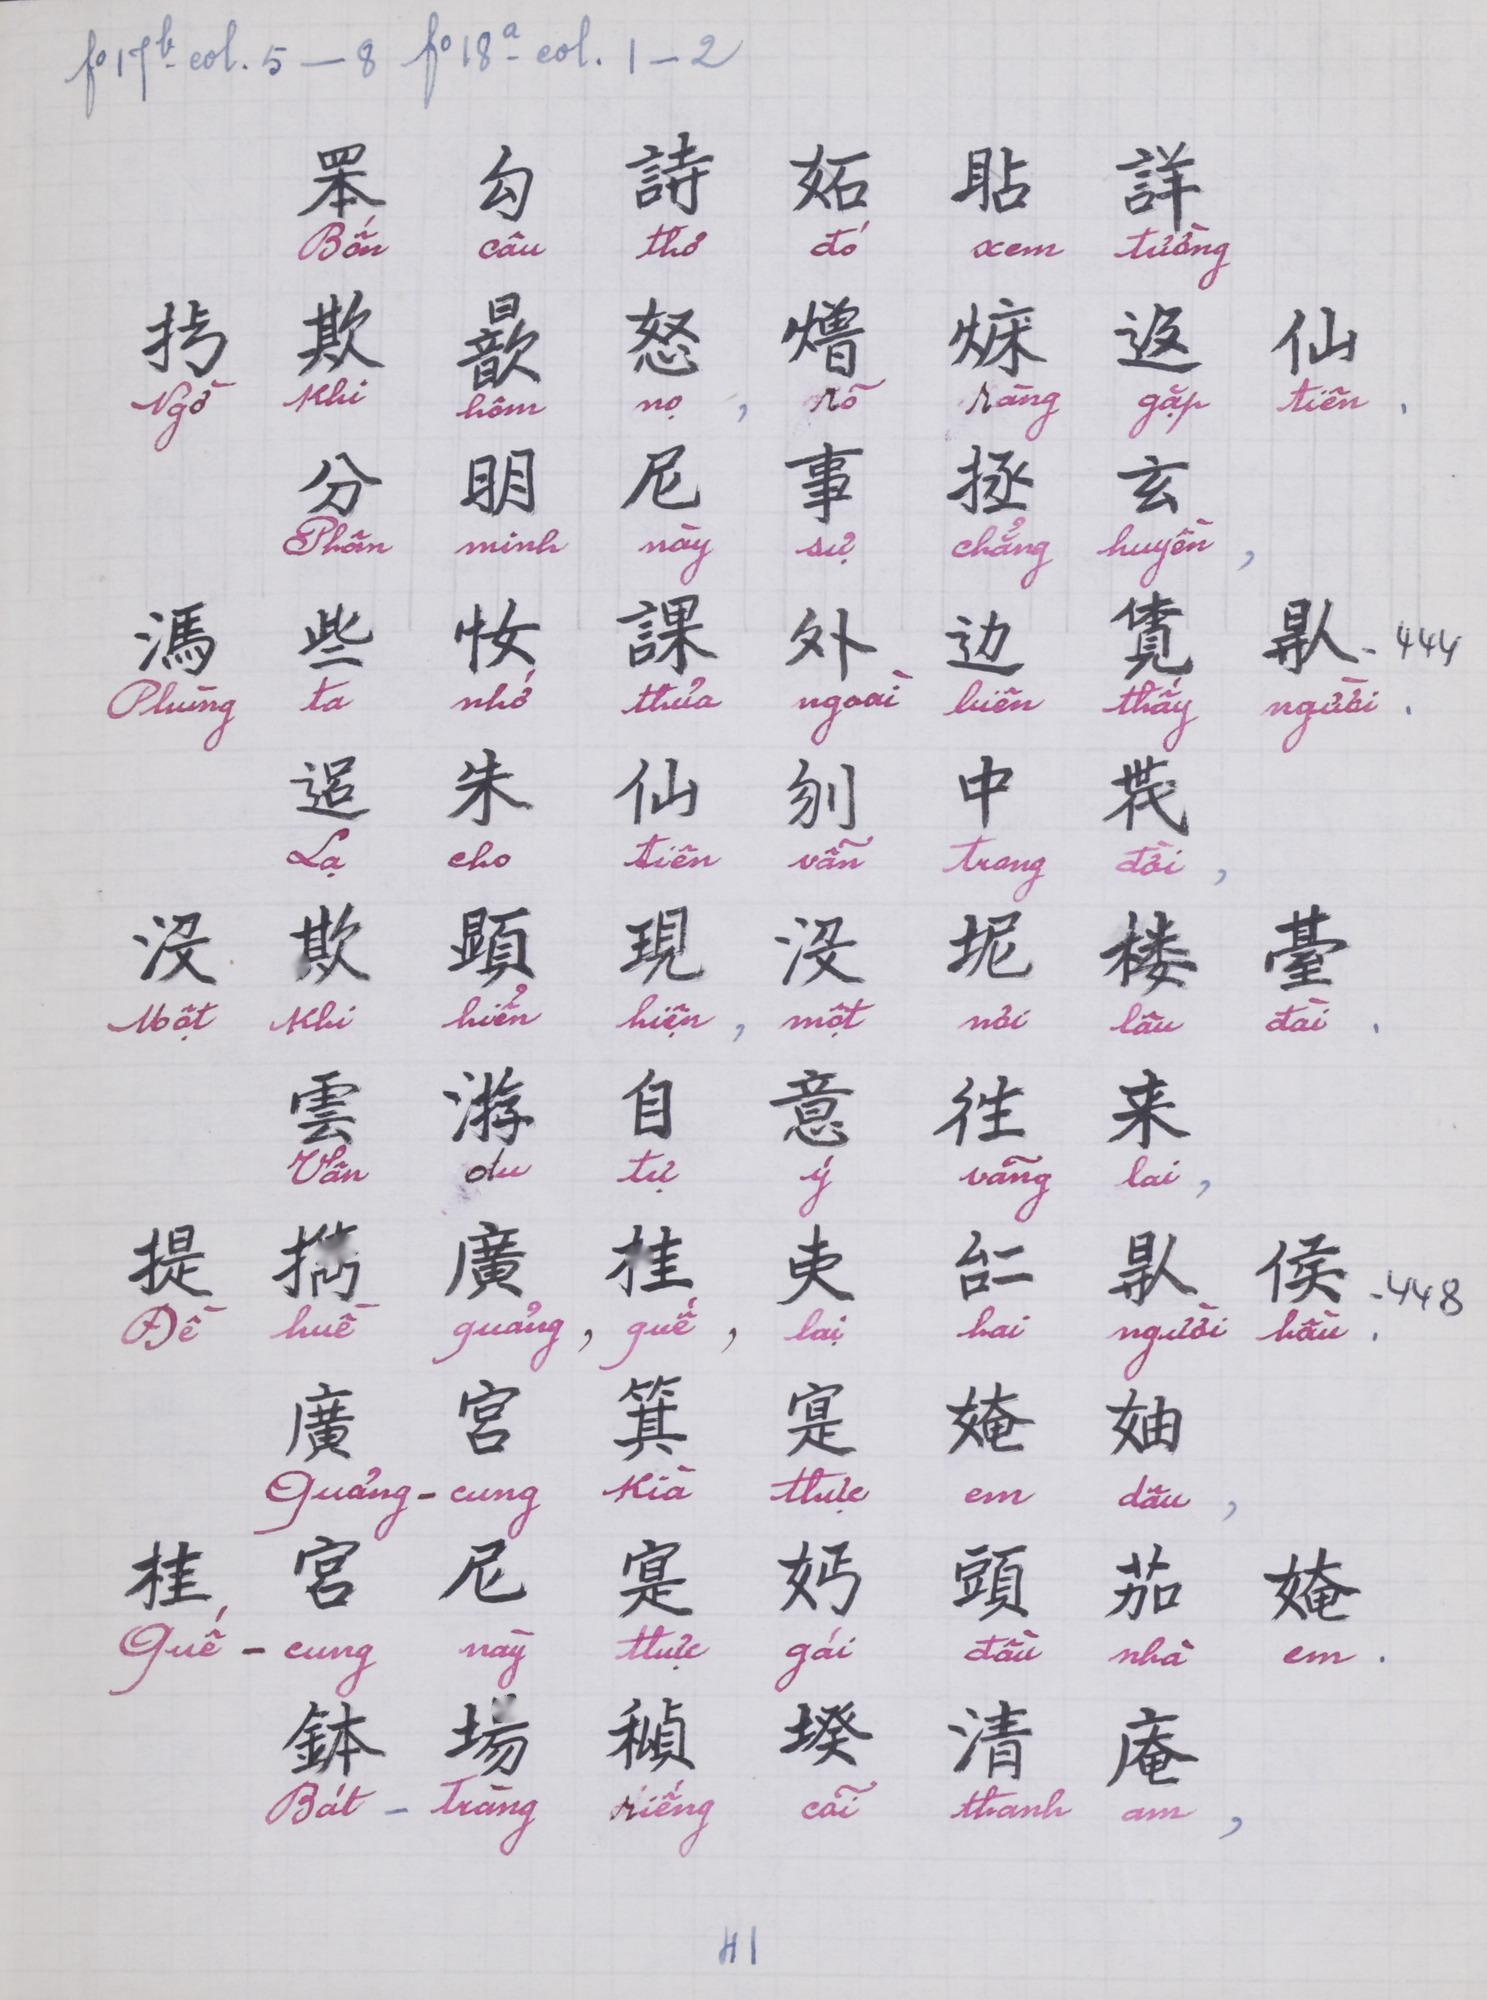 fº 17ᵇ col. 5 — 8 fº 18ᵃ col. 1 — 2
𦊚 勾 詩 妬 貼 詳
Bốn câu thơ đó xem tường
扝 欺 歆 怒 𤊰 𤉜 返 仙
Ngờ khi hôm nọ, rõ ràng gặp tiên.
分 明 尼 事 拯 玄
Phân minh này sự chẳng huyền,
馮 些 𢘾 課 外 边 覓 𠊛 - 444
Phùng ta nhớ thuở ngoài biên thấy người.
迢 朱 仙 刎 中 𠁀
Lạ cho tiên vẫn trong đời,
没 欺 顕 現 没 坭 楼 臺
Một khi hiển hiện, một nơi lâu đài.
雲 游 自 意 徃 来
Vân du tự ý vãng lai,
提 携 廣 桂 吏 𠄩 𠊛 侯 - 448
Đề huề quảng, quế, lại hai người hầu.
廣 宮 箕 寔 㛪 妯
Quảng - cung kia thực em dâu,
桂 宮 尼 寔 妈 頭 茹 㛪
Quế - cung này thực gái đầu nhà em.
鉢 場 𥘶 揆 清 庵
Bát - Tràng riếng cõi thanh am,
41